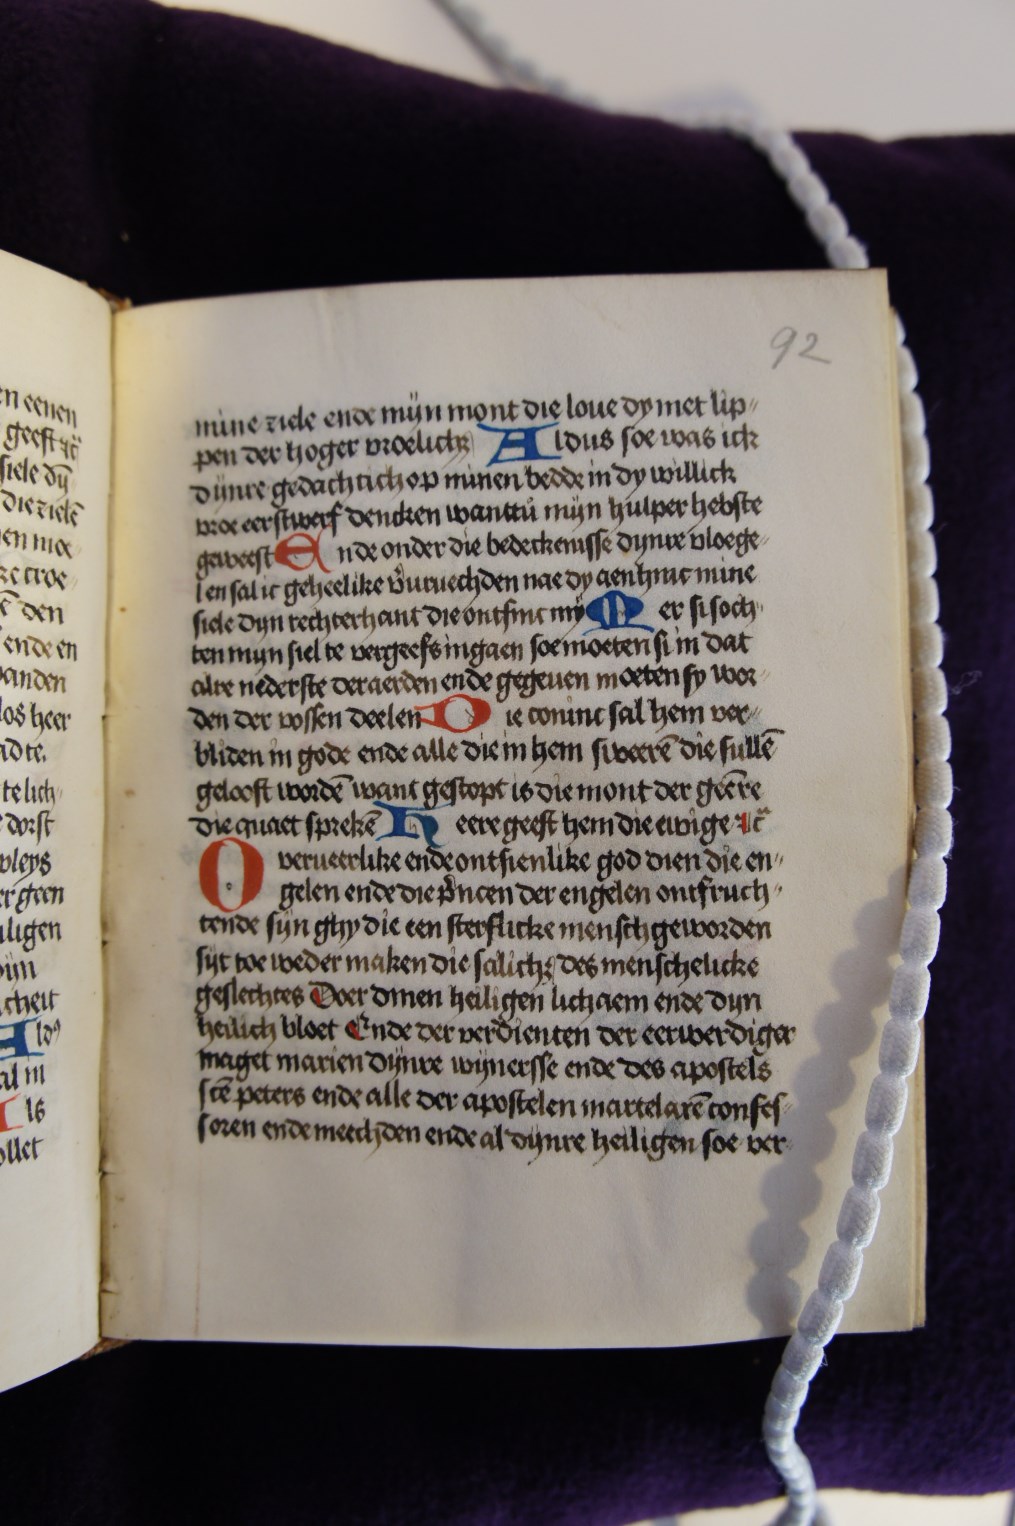 92
mine ziele ende mijn mont die loue dy met lip
pen der hoger vroelich; Aldus soe was ick
dijnre gedachtich op minen bedde in dy will ick
vroe eerstwerf dencken wanttu mijn hulper hebste
geweest Ende onder die bedeckenisse dynre vloege
len sal ic geheelike v̾vruechden nae dy aenhinc mine
siele dijn rechterhant die ontfinc my Mer si soch
ten mijn siel te vergeefs ingaen soe moeten si in dat
alre nederste der aerden ende gegeuen moeten sy wor
den der vossen deelen Die coninc sal hem ver
bliden in gode ende alle die in hem sweerē die sullē
gelooft wordē want gestopt is die mont der geēre
die quaet sprekē Heere geeft hem die ewige ⁊c̄
O verueerlike ende ontsienlike god dien die en
gelen ende die p̾ncen der engelen ontfruch
tende sijn ghy die een sterflicke mensch geworden
sijt toe weder maken die salich; des menschelicke
geslechtes Doer dinen heiligen lichaem ende dijn
heilich bloet Ende der verdienten der eerwerdiger
maget marien dijnre wijnersse ende des apostels
sc̄te peters ende alle der apostelen martelarē confes
soren ende meechden ende al dijnre heiligen soe ver